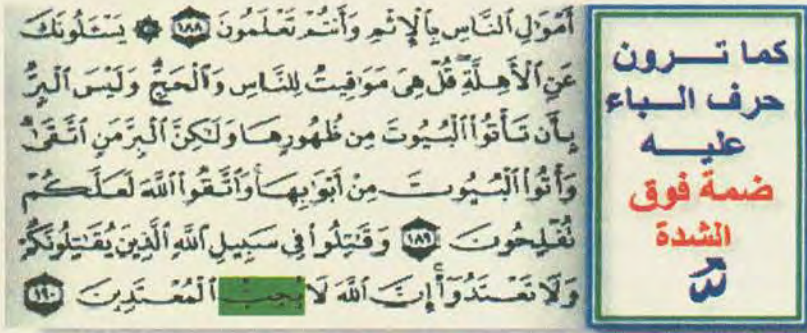 كما تــرون
حرف الـباء
عليــه
ضمة فوق
الشدة
ـُّ
أَمْوَٰلِ ٱلنَّاسِ بِٱلْإِثْمِ وَأَنتُمْ تَعْلَمُونَ ١٨٨ ۞ يَسْـَٔلُونَكَ
عَنِ ٱلْأَهِلَّةِ قُلْ هِىَ مَوَٰقِيتُ لِلنَّاسِ وَٱلْحَجِّ وَلَيْسَ ٱلْبِرُّ
بِأَن تَأْتُوا۟ ٱلْبُيُوتَ مِن ظُهُورِهَا وَلَٰكِنَّ ٱلْبِرَّ مَنِ ٱتَّقَىٰ
وَأْتُوا۟ ٱلْبُيُوتَ مِنْ أَبْوَٰبِهَا وَٱتَّقُوا۟ ٱللَّهَ لَعَلَّكُمْ
تُفْلِحُونَ ١٨٩ وَقَٰتِلُوا۟ فِى سَبِيلِ ٱللَّهِ ٱلَّذِينَ يُقَٰتِلُونَكُمْ
وَلَا تَعْتَدُوٓا۟ إِنَّ ٱللَّهَ لَا يُحِبُّ ٱلْمُعْتَدِينَ ١٩٠